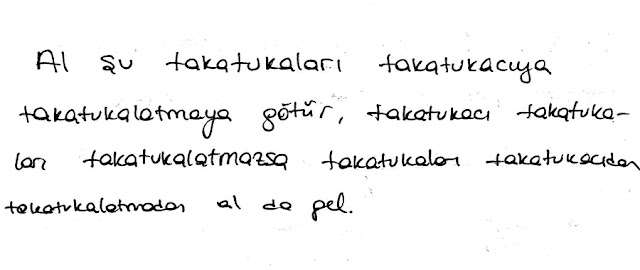 Al şu takatukaları takatukacıya
takatukalatmaya götür, takatukacı takatuka-
ları takatukalatmazsa takatukaları takatukacıdan
takatukalatmadan al da gel.